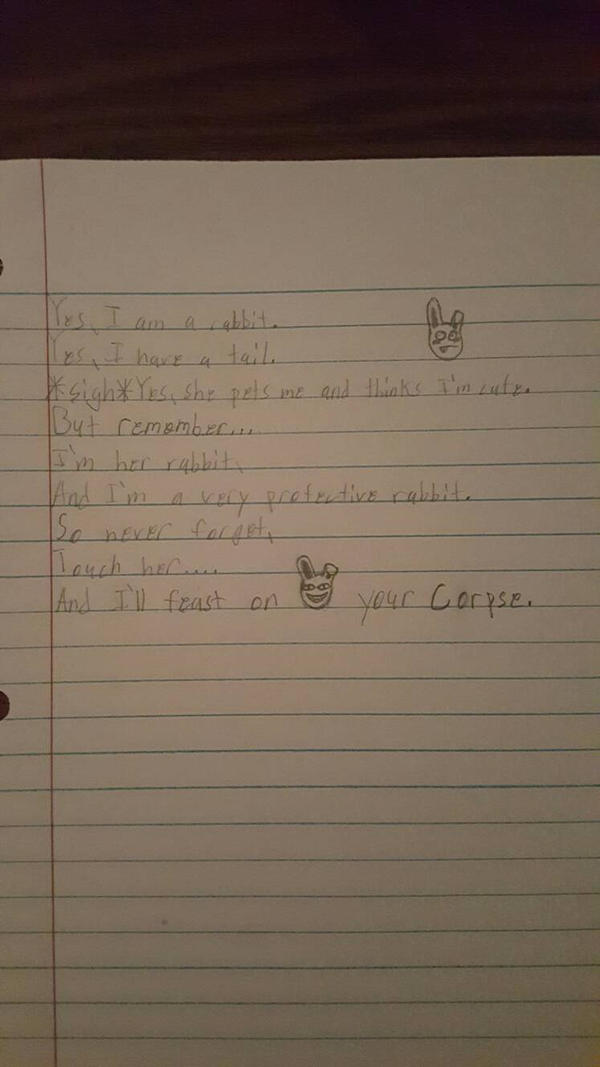 Yes, I am a rabbit.
Yes, I have a tail.
*sigh*Yes, she pets me and thinks I'm cute.
But remember...
I'm her rabbit,
And I'm a very protective rabbit.
So never forget,
Touch her....
And I'll feast on your Corpse.